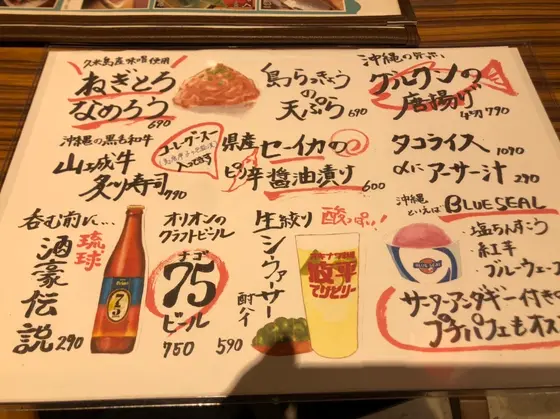 久米島産味噌使用
ねぎとろ
なめろう
690
島らっきょう
の
天ぷら
690
沖縄の県魚
グルクンの
唐揚げ
790
沖縄の黒毛和牛
山城牛
炙り寿司
790
コーレーグースー
入ってます
県産
ピリ辛
セーイカの
醤油漬け
600
タコライス
1090
〆に アーサー汁
290
呑む前に…
琉球
酒豪伝説
290
75
オリオンの
クラフトビール
ナゴ
75
ビール
750
生絞り
酸っぱい!
シークヮーサー
酎ハイ
590
てびとりー
沖縄
といえば
BLUE SEAL
BLUE SEAL
・塩ちんすこう
・紅芋
・ブルーウェーブ
サーターアンダギー付き
プチパフェもオス